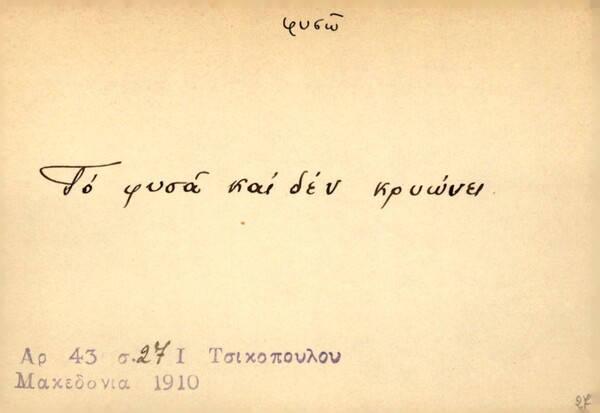 φυσῶ
Τό φυσᾶ καί δέν κρυώνει
Αρ 43 σ. 27 Ι Τσικοπουλου
Μακεδονια 1910
27